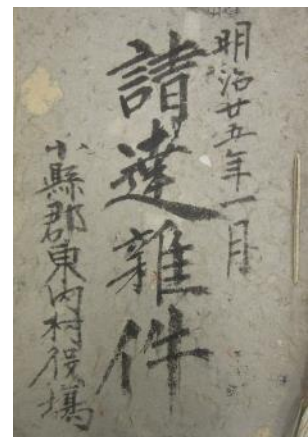 明治廿五年一月
請達雜件
小縣郡東内村役場